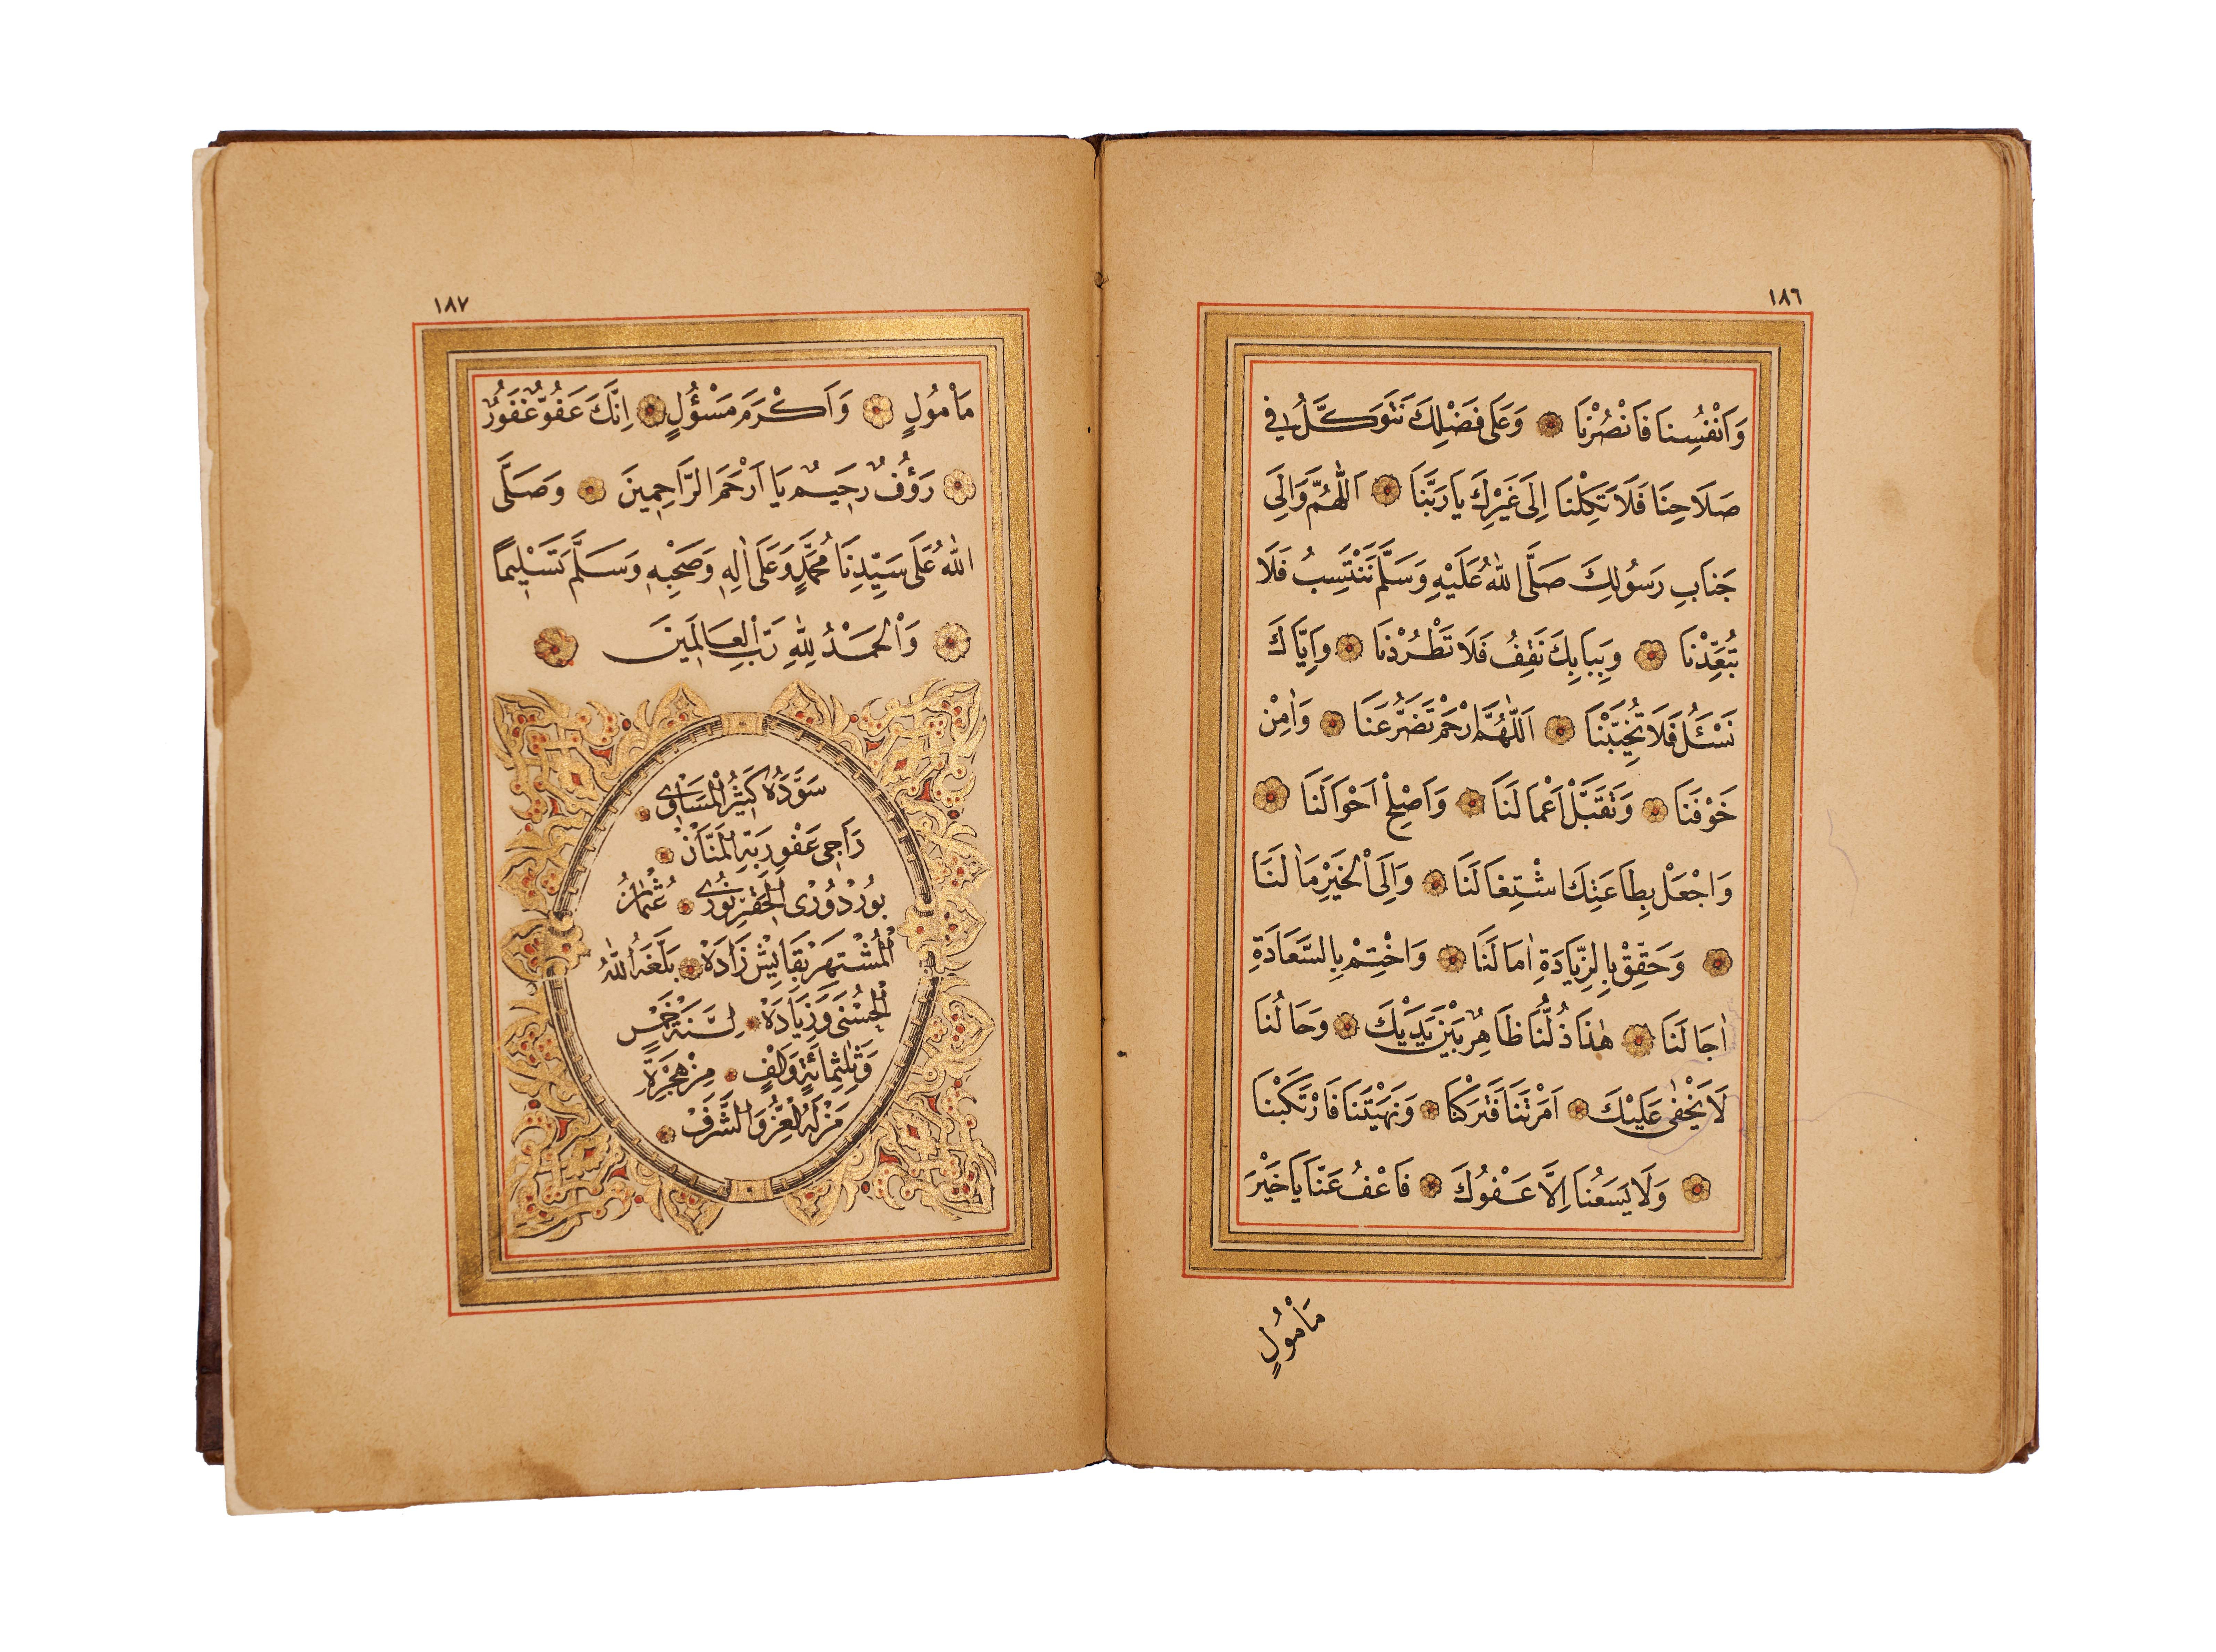 ١٨٦
وَاَنْفُسِنَا فَانْصُرْنَا وَعَلَى فَضْلِكَ نَتَوَكَّلُ فِي
صَلَاحِنَا فَلَا تَكِلْنَا اِلَى غَيْرِكَ يَا رَبَّنَا اَللّٰهُمَّ وَاِلَى
جَنَابِ رَسُولِكَ صَلَّى اللّٰهُ عَلَيْهِ وَسَلَّمَ نَنْتَسِبُ فَلَا
تُبَعِّدْنَا وَبِبَابِكَ نَقِفُ فَلَا تَطْرُدْنَا وَاِيَّاكَ
نَسْئَلُ فَلَا تُخَيِّبْنَا اَللّٰهُمَّ ارْحَمْ تَضَرُّعَنَا وَاٰمِنْ
خَوْفَنَا وَتَقَبَّلْ اَعْمَالَنَا وَاَصْلِحْ اَحْوَالَنَا
وَاجْعَلْ بِطَاعَتِكَ اشْتِغَالَنَا وَاِلَى الْخَيْرِ مَاٰلَنَا
وَحَقِّقْ بِالزِّيَادَةِ اٰمَالَنَا وَاخْتِمْ بِالسَّعَادَةِ
اٰجَالَنَا هٰذَا ذُلُّنَا ظَاهِرٌ بَيْنَ يَدَيْكَ وَحَالُنَا
لَا يَخْفٰى عَلَيْكَ اَمَرْتَنَا فَتَرَكْنَا وَنَهَيْتَنَا فَارْتَكَبْنَا
وَلَا يَسَعُنَا اِلَّا عَفْوُكَ فَاعْفُ عَنَّا يَا خَيْرَ
مَاْمُولٍ
١٨٧
مَاْمُولٍ وَاَكْرَمَ مَسْؤُلٍ اِنَّكَ عَفُوٌّ غَفُورٌ
رَؤُفٌ رَحِيمٌ يَا اَرْحَمَ الرَّاحِمِينَ وَصَلَّى
اللّٰهُ عَلَى سَيِّدِنَا مُحَمَّدٍ وَعَلَى اٰلِهِ وَصَحْبِهِ وَسَلَّمَ تَسْلِيمًا
وَالْحَمْدُ لِلّٰهِ رَبِّ الْعَالَمِينَ
سَوَّدَهُ كَثِيرُ الْمَسَاوِى
رَاجِى عَفْوِ رَبِّهِ الْمَنَّانْ
بُورْدُورْى الْحَقِيرْ نُورِى عُثْمَانُ
الْمُشْتَهِرْ بِقَايِشْ زَادَهْ بَلَّغَهُ اللّٰهُ
الْحُسْنٰى وَزِيَادَهْ لِسَنَةِ خَمْسٍ
وَثَلٰثِمِائَةٍ وَاَلْفٍ مِنْ هِجْرَةِ
مَنْ لَهُ الْعِزُّ وَالشَّرَفْ